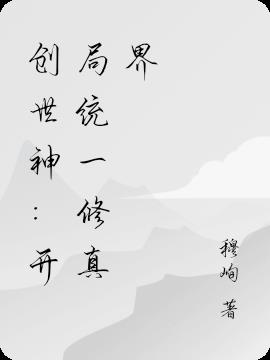 创世神：开
局统一修真
界
穆峋著